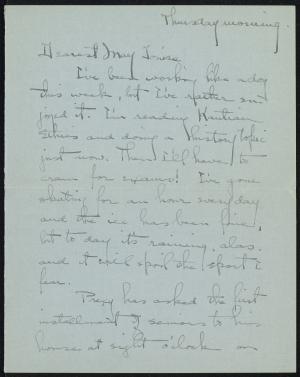 Thursday morning.
Dearest May Louise
I've been working like a dog
this week, but I've rather en-
joyed it. I'm reading Kantian
Ethics and doing a history topic
just now. Then I'll have to
cram for exams! I've gone
skating for an hour every day
and the ice has been fine,
but to day it's raining, alas.
and it will spoil the sport I
fear.
Prexy has asked the first
installment of seniors to his
house at eight o'clock on